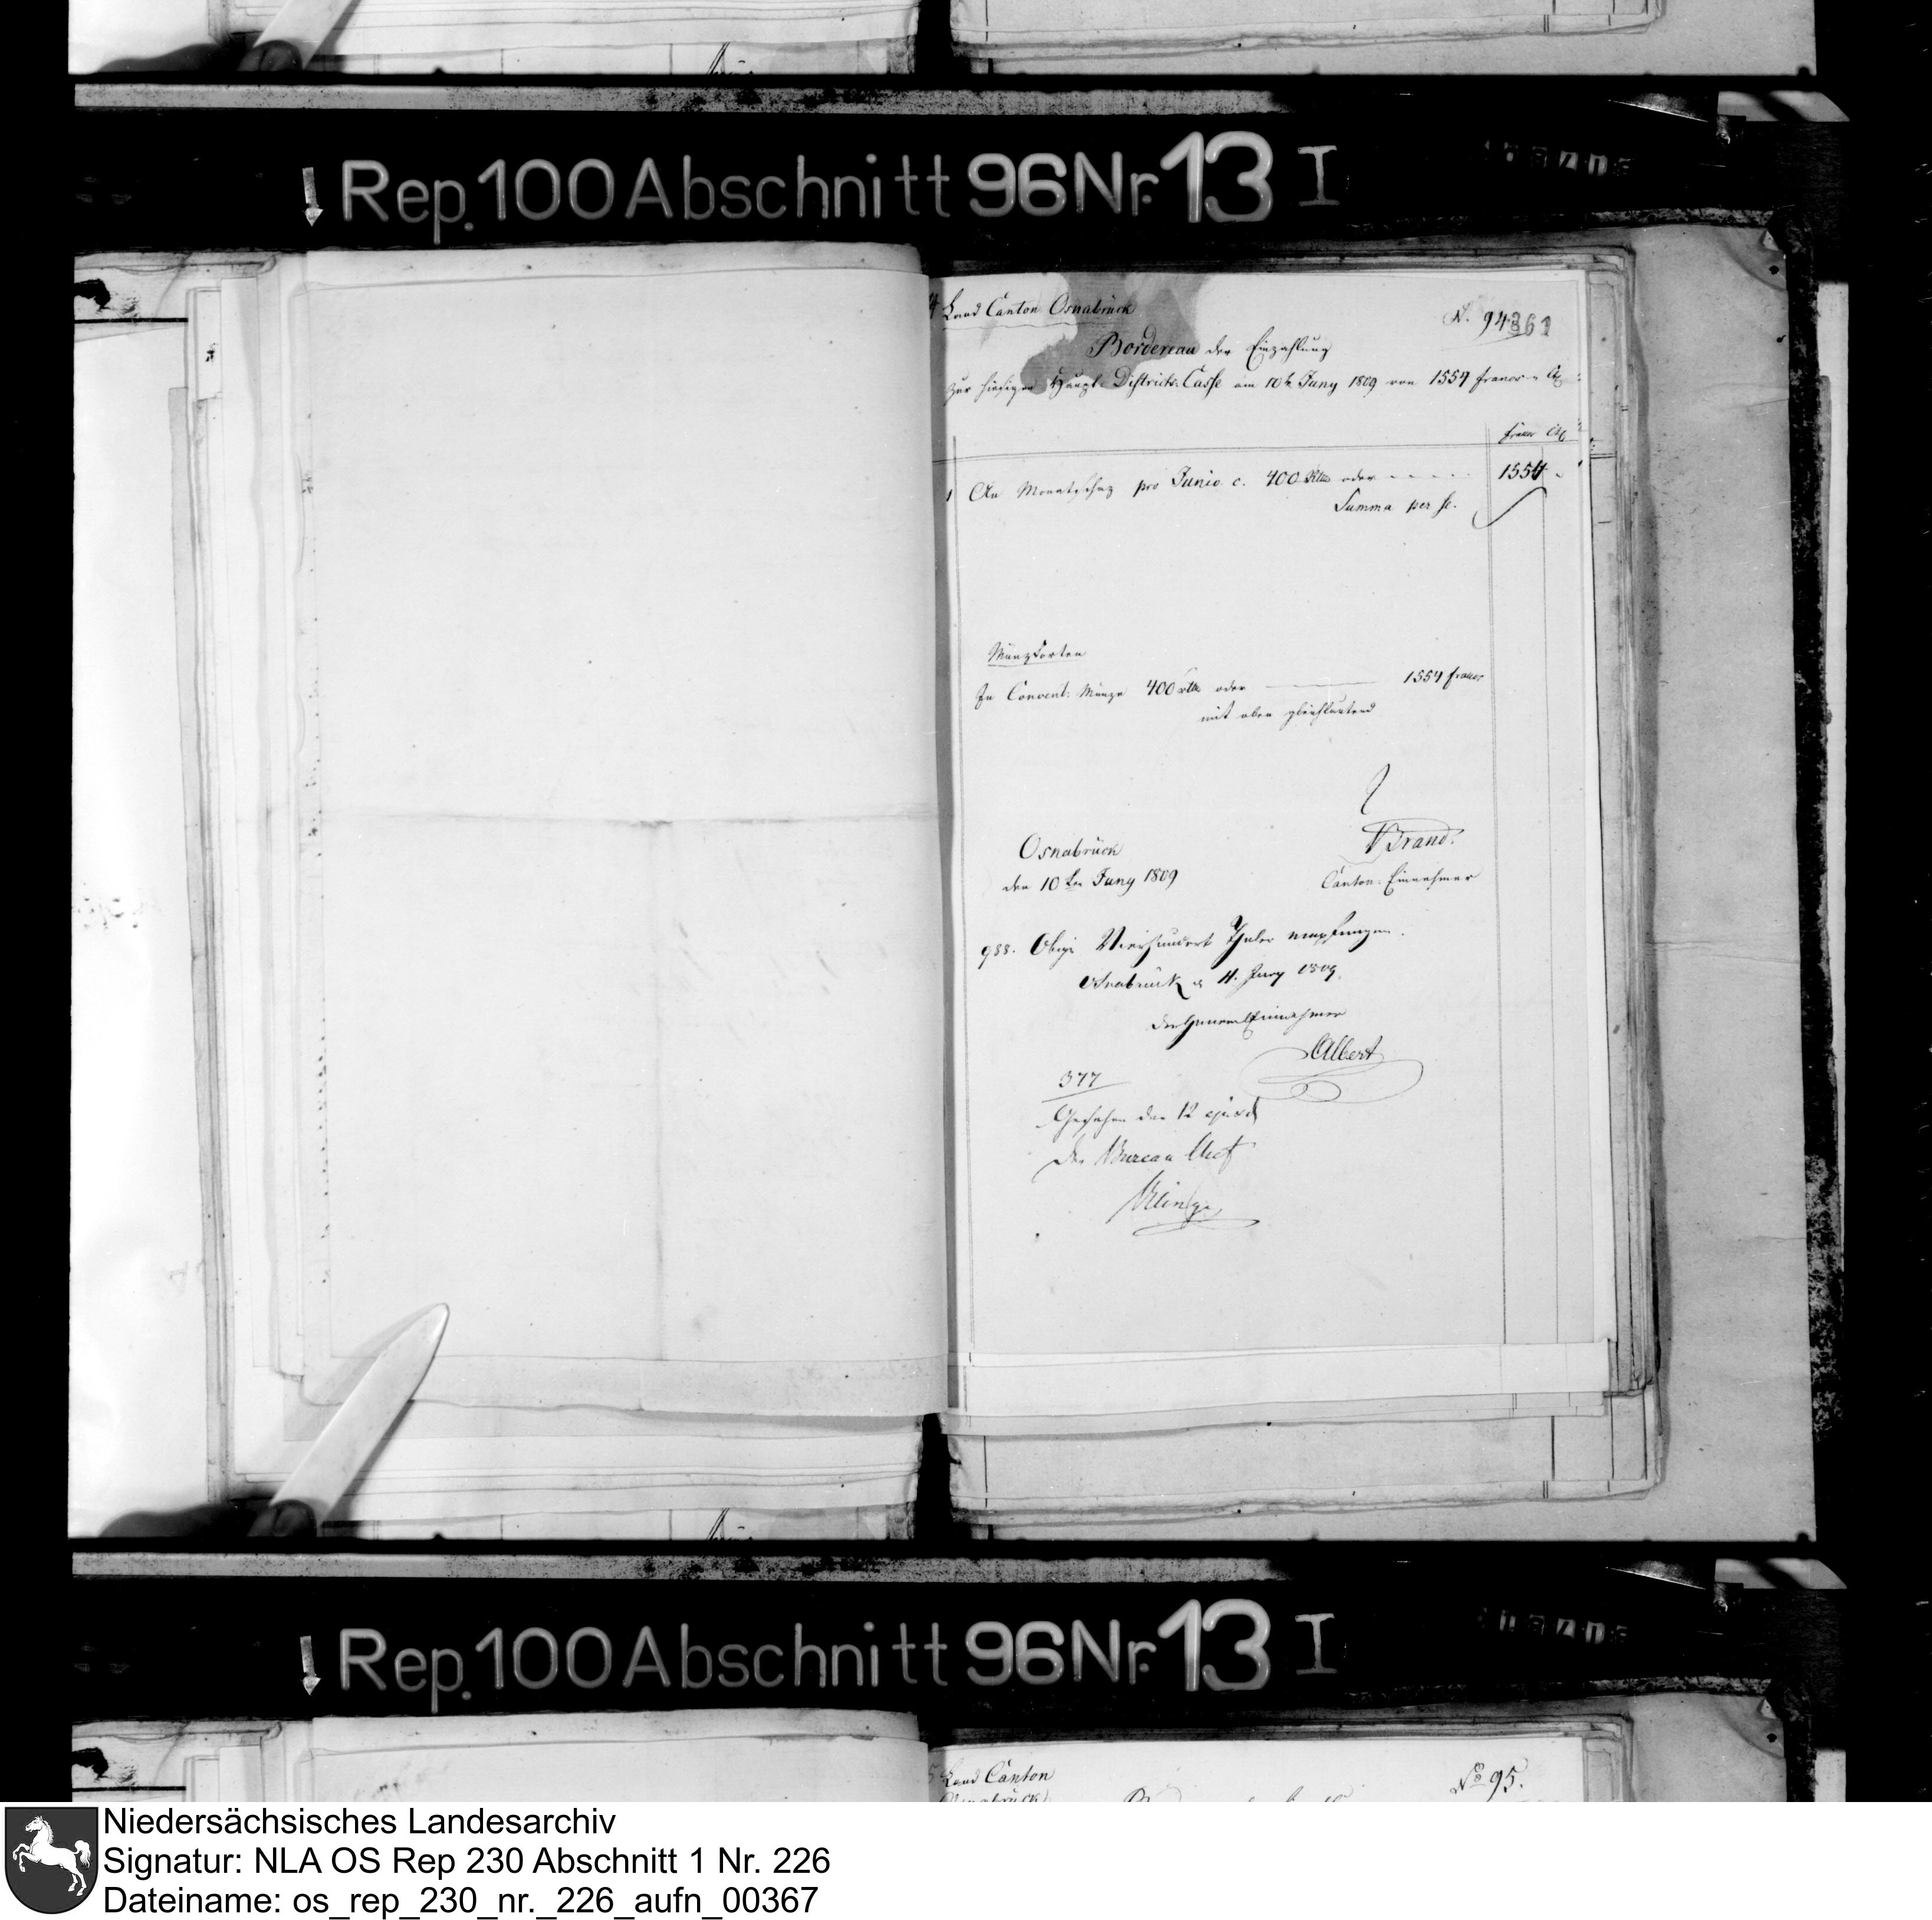 Rep. 100 Abschnitt 96 Nr. 13 I
Land Canton Osnabrück
N. 94 361
Bordereau der Einzahlung
zur hiesigen Haupt Districts-Casse am 10ten Juny 1809 von 1554 francs
francs
1 An Monatschaz pro Junio c. 400 Rtlr oder - - - - - 1554 "
Summa per se.
Münzsorten
In Convent: Münze 400 rtlr oder ——— 1554 francs
mit oben gleichlautend
Osnabrück
den 10ten Juny 1809
Brand.
Canton-Einnehmer
988. Obige Vierhundert Thaler empfangen.
Osnabrück d. 11. Juny 1809.
Der General Einnehmer
Albert
377
Gesehen den 12 ejusd
Der Bureau Chef
Rep. 100 Abschnitt 96 Nr. 13 I
Land Canton
Osnabrück
No 95.
Niedersächsisches Landesarchiv
Signatur: NLA OS Rep 230 Abschnitt 1 Nr. 226
Dateiname: os_rep_230_nr._226_aufn_00367